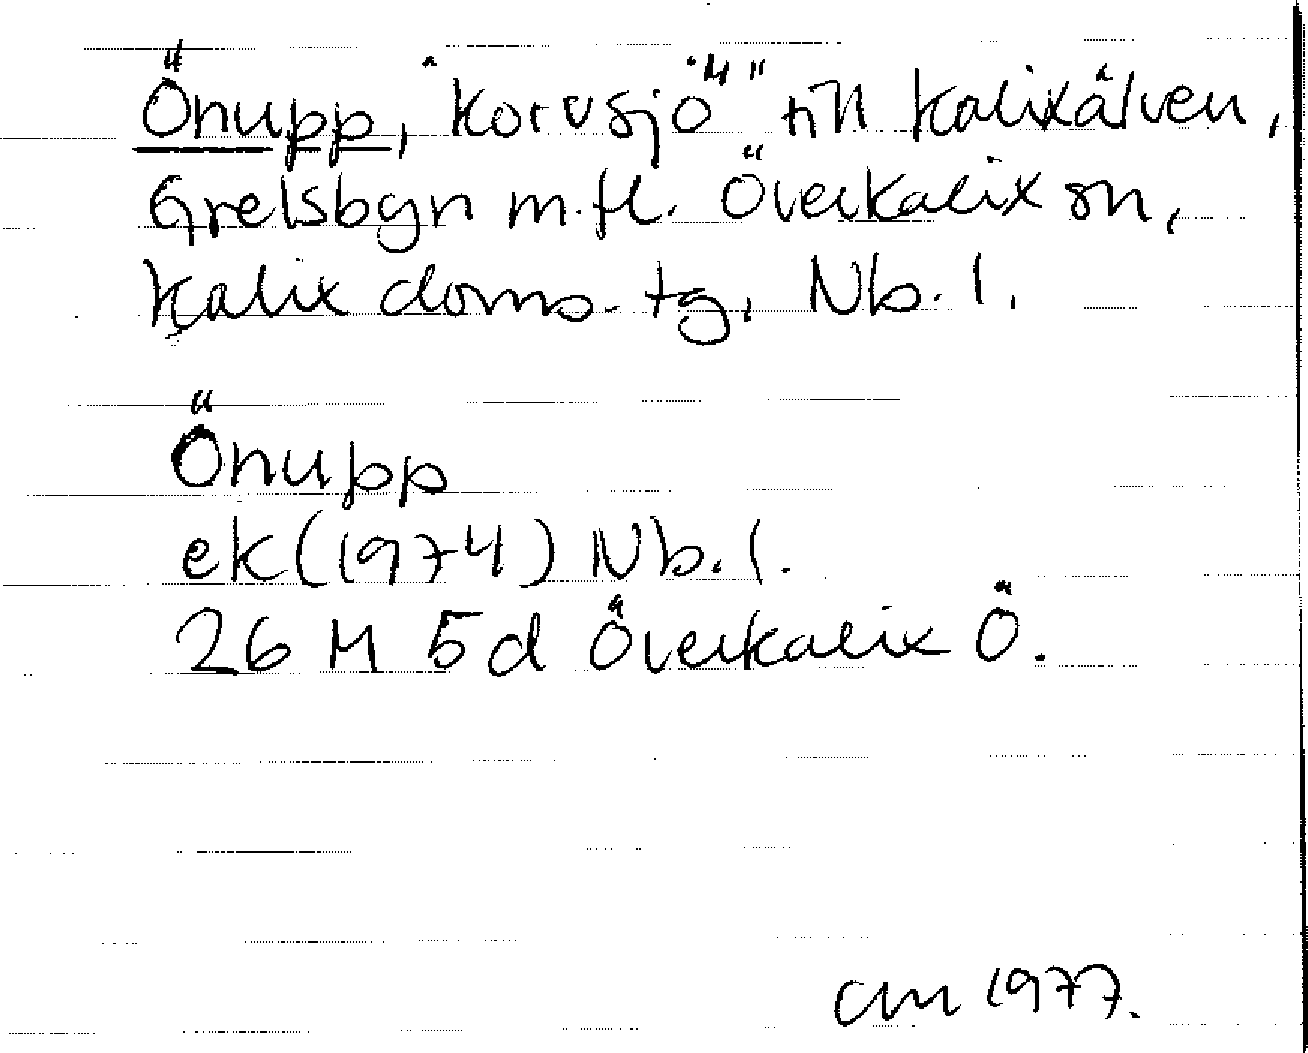 Önupp, "korvsjö" till Kalixälven,
Grelsbyn m.fl. Överkalix sn,
Kalix doms. tg, Nb. l.
Önupp
ek (1974) Nb. l.
26 M 5d Överkalix Ö.
CM 1977.